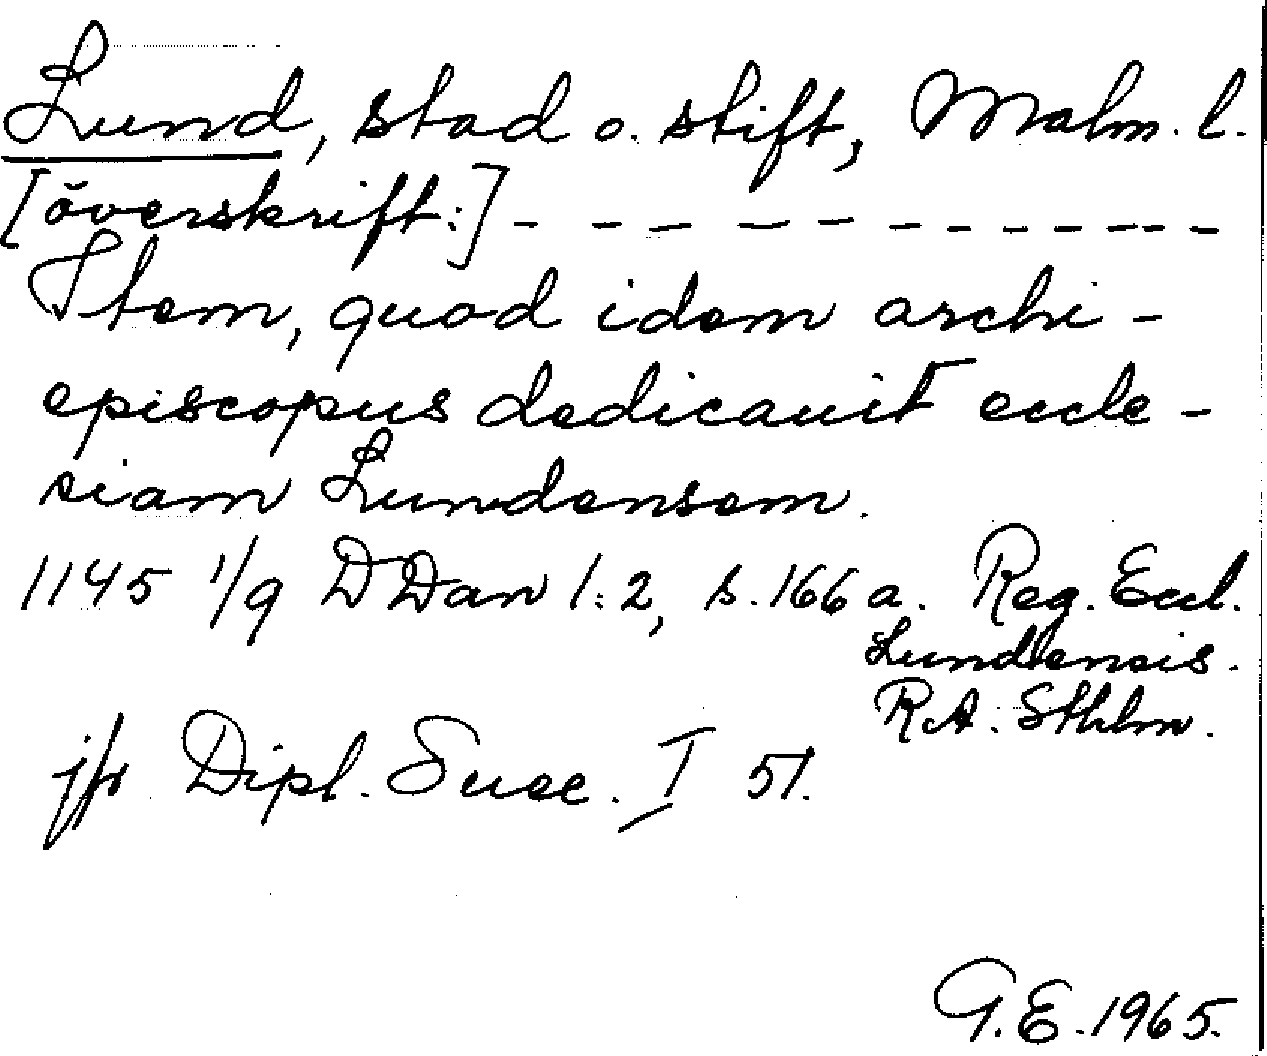 Lund, stad o. stift, Malm. l.
[överskrift:] - - - - - - - - - - - -
Item, quod idem archi-
episcopus dedicauit eccle-
siam Lundensem.
1145 1/9 DDan 1:2, s. 166 a. Reg. Eccl.
Lundensis.
RA. Sthlm.
jfr Dipl. Suec. I 51.
G.E. 1965.